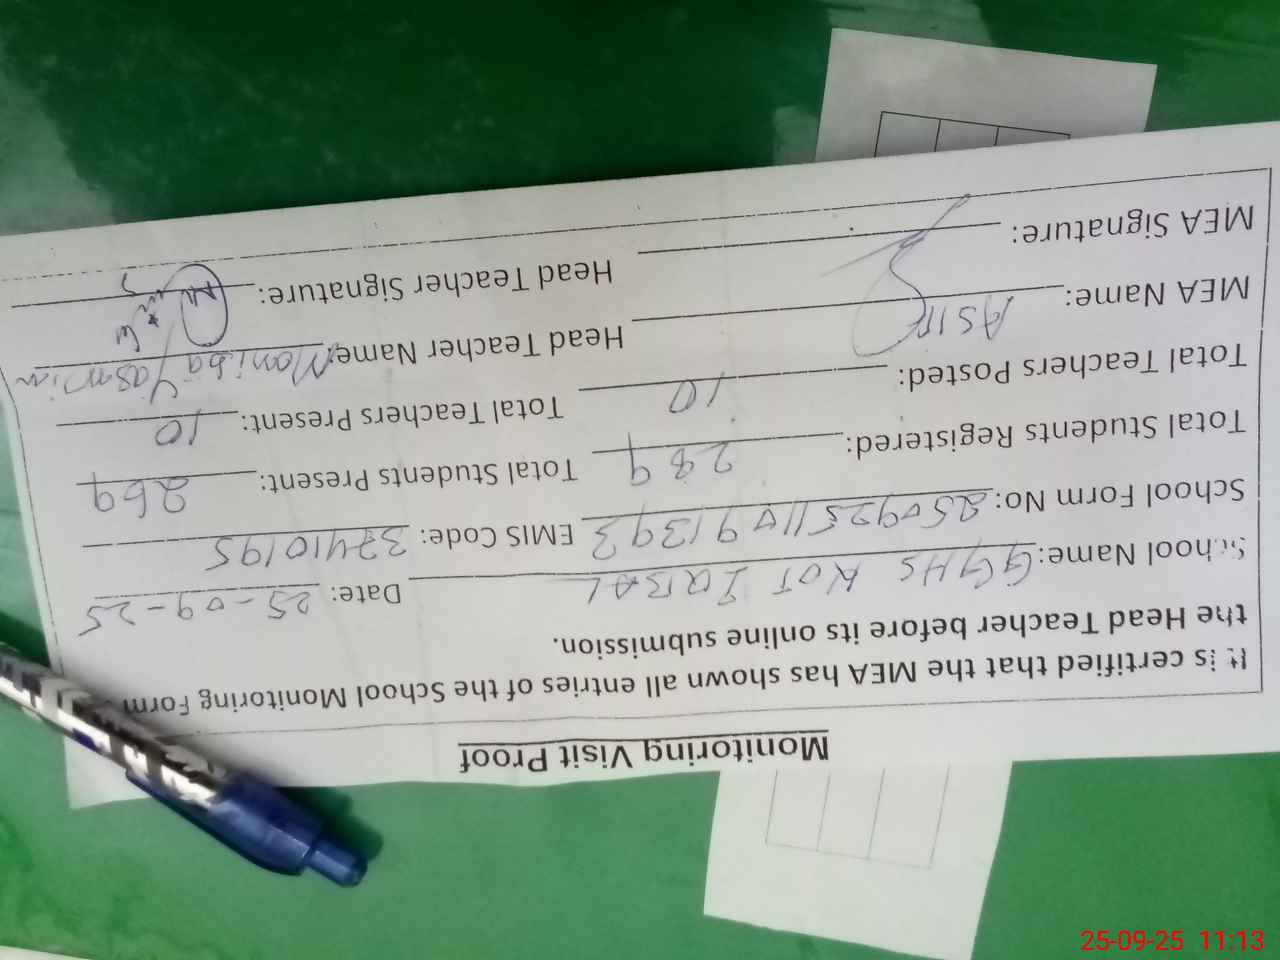 Monitoring Visit Proof
It is certified that the MEA has shown all entries of the School Monitoring Form
the Head Teacher before its online submission.
School Name: GGHS KOT IQBAL Date: 25-09-25
School Form No: 25092511091393 EMIS Code: 37410195
Total Students Registered: 289 Total Students Present: 269
Total Teachers Posted: 10 Total Teachers Present: 10
MEA Name: ASIF Head Teacher Name: Moniba Yasmin
MEA Signature: Head Teacher Signature:
25-09-25 11:13